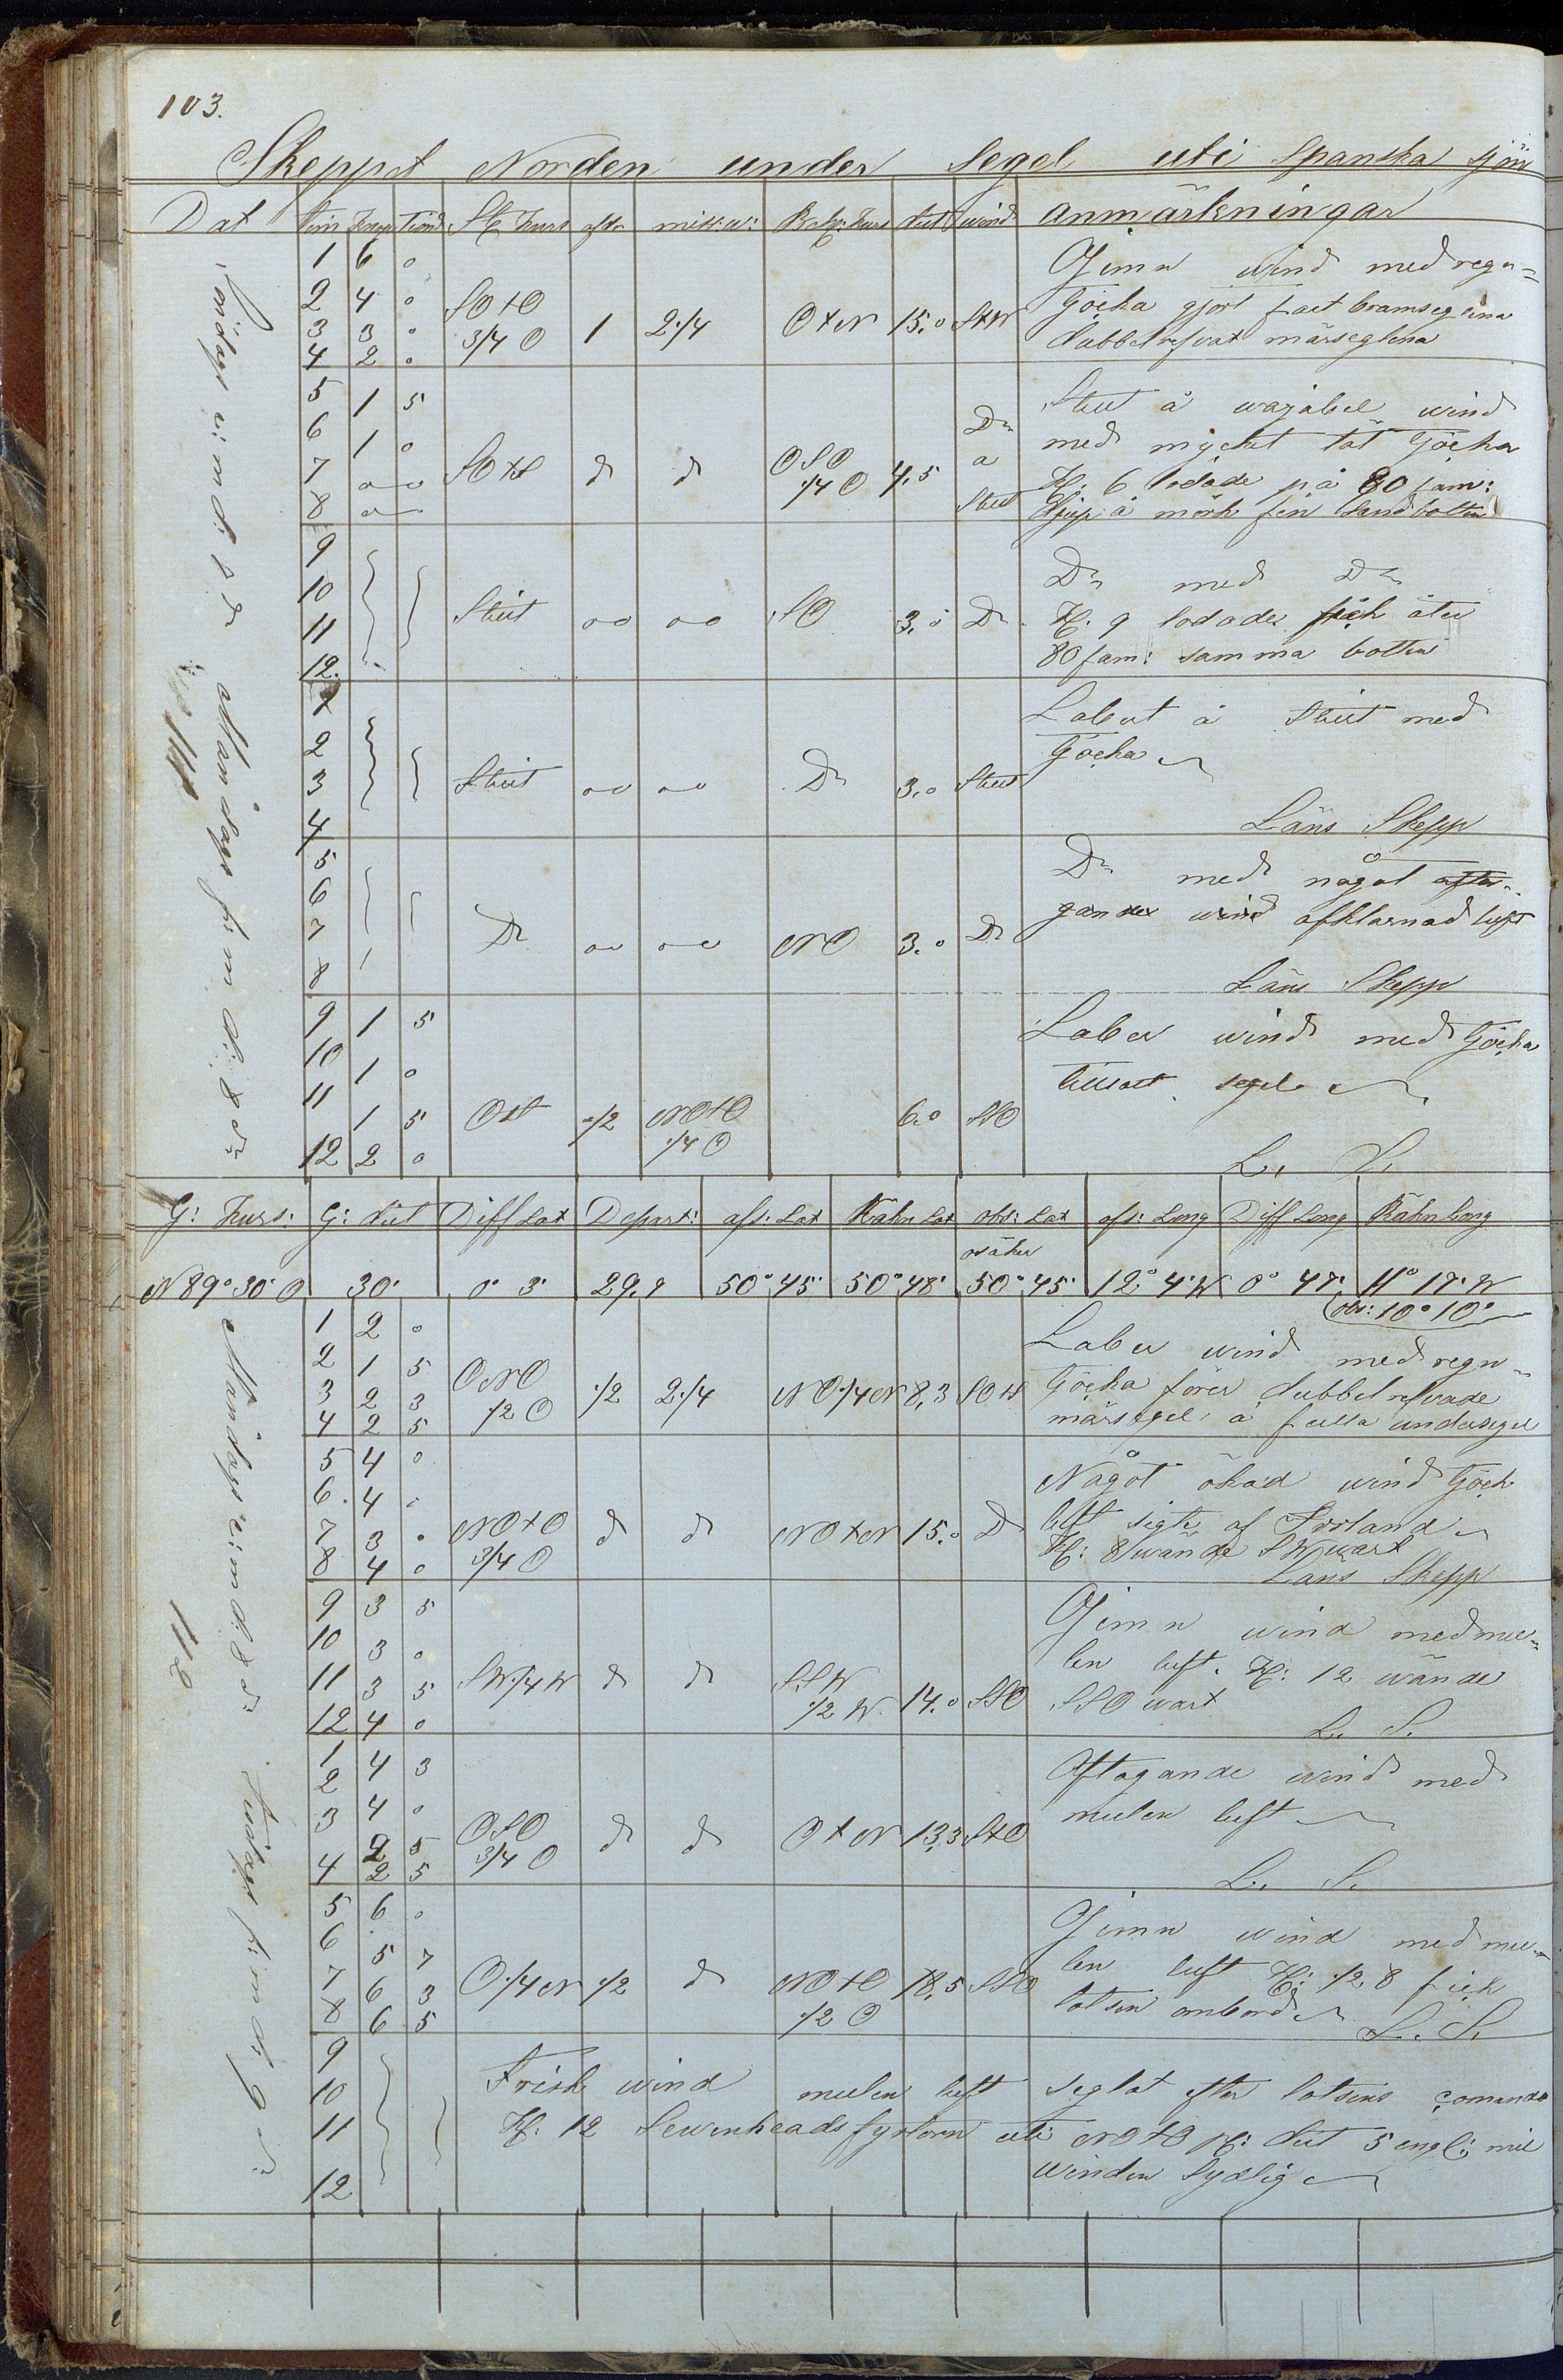 103.
Skeppet Norden under Segel uti Spanska sjön
Dat Tim Knop Tiond St. Kurs afdr miss: w: Beh: Kurs dist wind anmärkningar
Söndags e: m d: 7 dr
Måndags f: m d: 8 dr
111
1 6 0
2 4 0
3 3 0
4 2 0
SO t O 3/4 O 1 2 1/4 O t N 15.0 S t W
Jemn wind med regn=
tjöcka gjort fast bramseglena
dubbelrefvat märseglena
5 1 5
6 1 0
7 0 0
8 0
SO t S d d OSO 1/4 O 4,5 Do a Stilt
Stilt å variabel wind
med mÿcket tät tjöcka
Kl. 6 lodade på 80 fam:
djup å mörk fin sand botten
9
10
11
12.
Stilt 0 0 0 0 SO 3.0 Do
Do med Do
Kl. 9 lodades fick åter
80 fam: samma botten
1
2
3
4
Stilt 0 0 0 0 Do 3.0 Stilt
Labert å Stilt med
tjöcka
Läns Skepp
5
6
7
8
Do 0 0 0 0 NO 3.0 Do
Do med något
wind afklarnad luft
Läns Skepp
9 1 5
10 1 0
11 1 5
12 2 0
O t S 1/2 NO t O 1/4 O 6.0 SSO
Laber wind med tjöcka
tillsatt segel
L. S.
G: Kurs: G: dist Diff Lat Depart: afs: Lat Räkn Lat obs: Lat afs: Long Diff Long Räkn Long
osäker
N 89° 30' O 30' 0° 3' 29,9 50° 45' 50° 48' 50° 45' 12° 4' W 0° 47' 11° 17' W
obs: 10° 10'
Måndags e: m d: 8 dr
Tisdags f: m d: 9 d
112
1 2 0
2 1 5
3 2 3
4 2 5
ONO 1/2 O 1/2 2 1/4 NO 1/4 N 8,3 SO t S
Laber wind med regn
tjöcka förer dubbel refvade
märsegel å fulla undersegel
5 4 0
6 4 0
7 3 0
8 4 0
NO t O 3/4 O d d NO t N 15.0 Do
Något ökad wind tjöck
luft sigte af Irrland
Kl: 8 wände SW wart
Läns Skepp
9 3 5
10 3 0
11 3 5
12 4 0
SW 1/4 W d d SSW 1/2 W 14.0 SSO
Jemn wind med mu=
len luft. Kl: 12 wände
SSO wart
L. S.
1 4 3
2
3 4 0
2 5
4 2 5
OSO 3/4 O d d O t N 13,3 S t O
Aftagande wind med
mulen luft
L. S.
5 6 0
6 5 7
7 6 3
8 6 5
O 1/4 N 1/2 d NO t O 1/2 O 18,5 SSO
Jemn wind med mu=
len luft Kl: 1/2 8 fick
lotsen ombord
L. S.
9
10
11
12
Frisk wind mulen luft seglat efter lotsens comando
Kl. 12 Sewenheads fyrtorn uti NO t O pr: dist 5 engl: mil
winden Sydlig